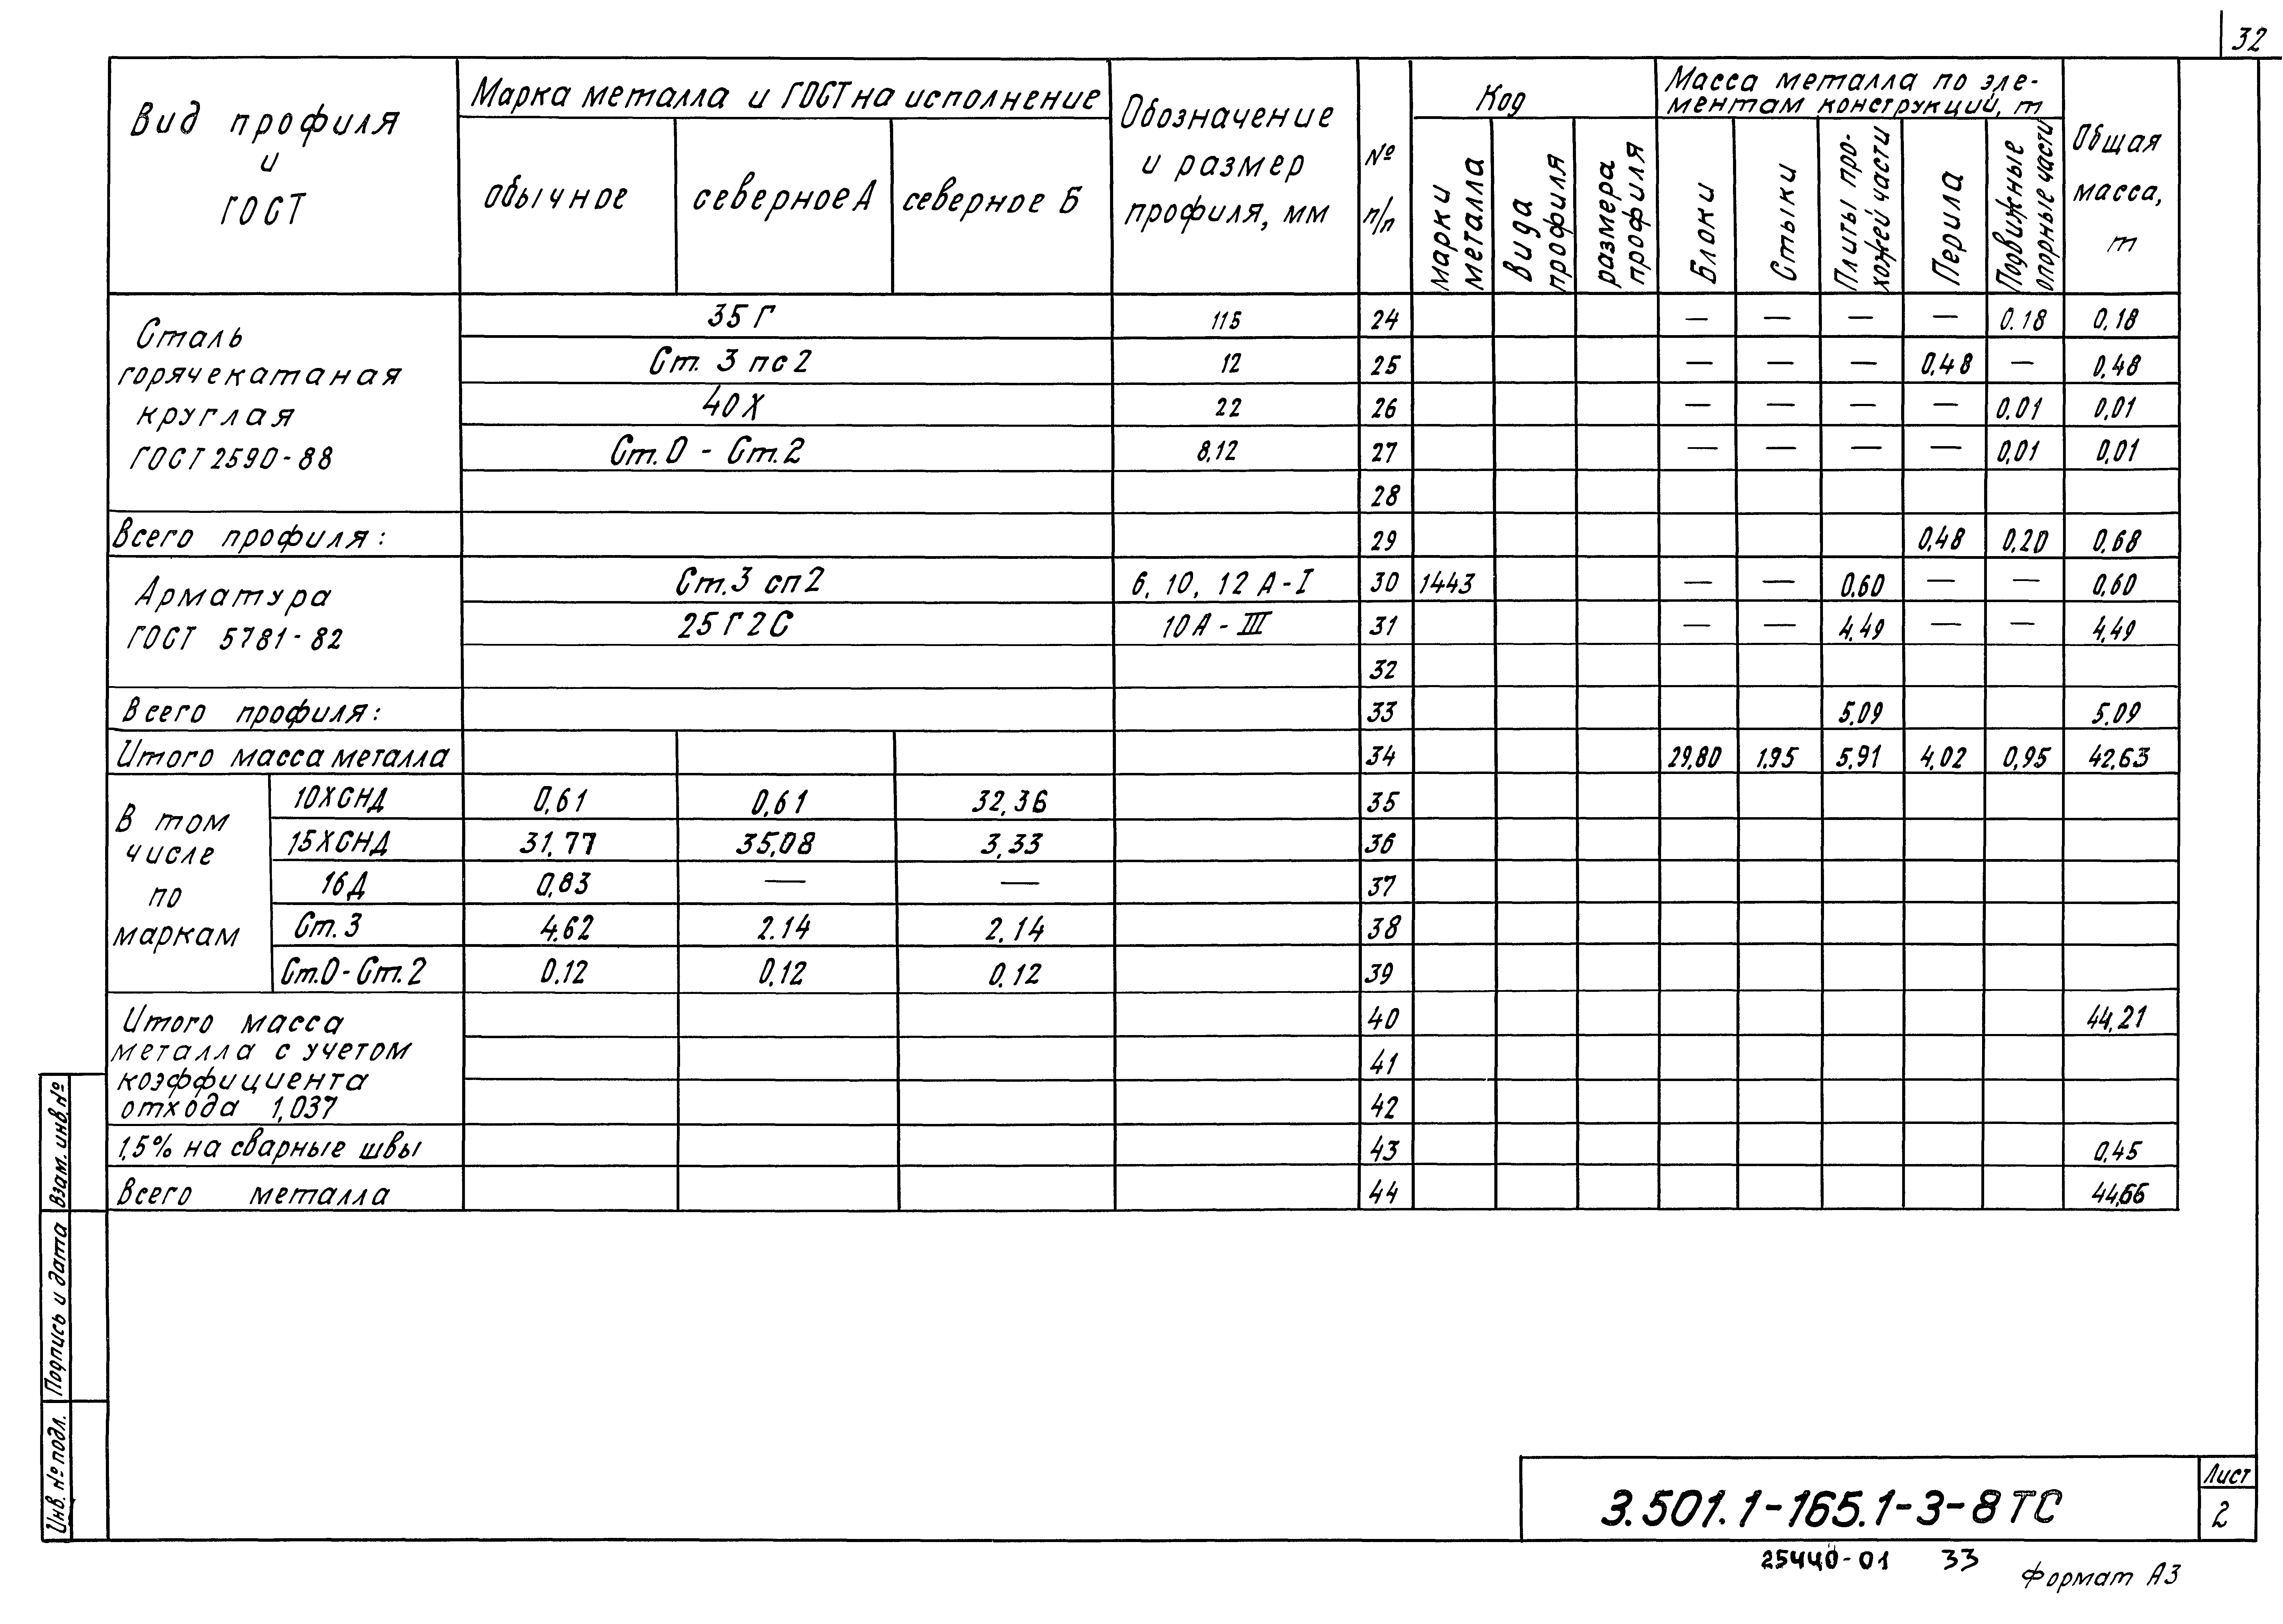 32
Вид профиля и ГОСТ
Марка металла и ГОСТ на исполнение
обычное
северное А
северное Б
Обозначение и размер профиля, мм
№ п/п
Код
марки металла
вида профиля
размера профиля
Масса металла по эле-
ментам конструкций, т
Блоки
Стыки
Плиты про-
хожей части
Перила
Подвижные опорные части
Общая масса, т
Сталь
горячекатаная
круглая
ГОСТ 2590-88
35Г 115 24 — — — — 0.18 0,18
Ст. 3 пс2 12 25 — — — 0,48 — 0,48
40Х 22 26 — — — — 0,01 0,01
Ст.0 - Ст.2 8,12 27 — — — — 0,01 0,01
28
Всего профиля: 29 0,48 0,20 0,68
Арматура
ГОСТ 5781-82
Ст.3 сп2 6, 10, 12 А-I 30 1443 — — 0.60 — — 0,60
25Г2С 10А-III 31 — — 4.49 — — 4,49
32
Всего профиля: 33 5.09 5.09
Итого масса металла 34 29,80 1,95 5,91 4,02 0,95 42,63
В том
числе
по
маркам
10ХСНД 0,61 0,61 32,36 35
15ХСНД 31,77 35,08 3,33 36
16Д 0,83 — — 37
Ст.3 4.62 2.14 2,14 38
Ст.0-Ст.2 0.12 0,12 0,12 39
Итого масса
металла с учетом
коэффициента
отхода 1,037
40 44,21
41
42
1,5% на сварные швы 43 0,45
Всего металла 44 44,66
Взам. инв.№
Подпись и дата
Инв.№ подл.
3.501.1-165.1-3-8ТС
Лист
2
25440-01 33
Формат А3